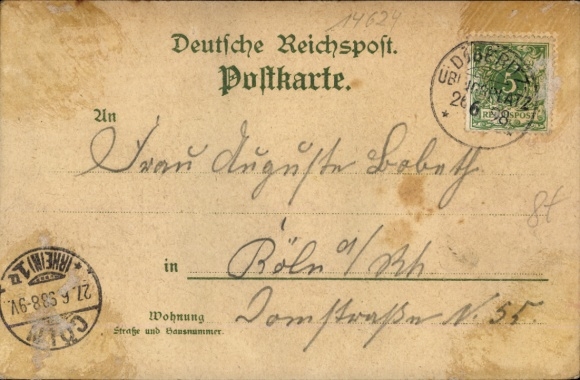 14624
Deutsche Reichspost.
Postkarte.
DÖBERITZ
ÜBUNGSPLATZ
26 6 98
5
REICHSPOST
An
Frau Auguste Bobeth
84
in Köln a/Rh
Wohnung
Straße und Hausnummer.
Domstraße N. 55.
CÖLN (RHEIN) 1
27.6.98.8-9V.